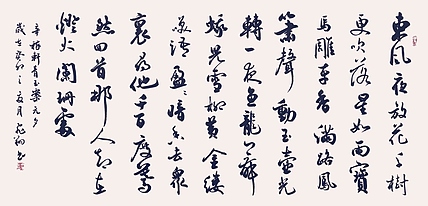 東風夜放花千樹
更吹落星如雨寶
馬雕車香滿路鳳
簫聲動玉壺光
轉一夜魚龍舞
蛾兒雪柳黃金縷
笑語盈〻暗香去眾
裏尋他千百度驀
然回首那人却在
燈火闌珊處
辛稼軒青玉案元夕
歲在癸卯之夏月 书